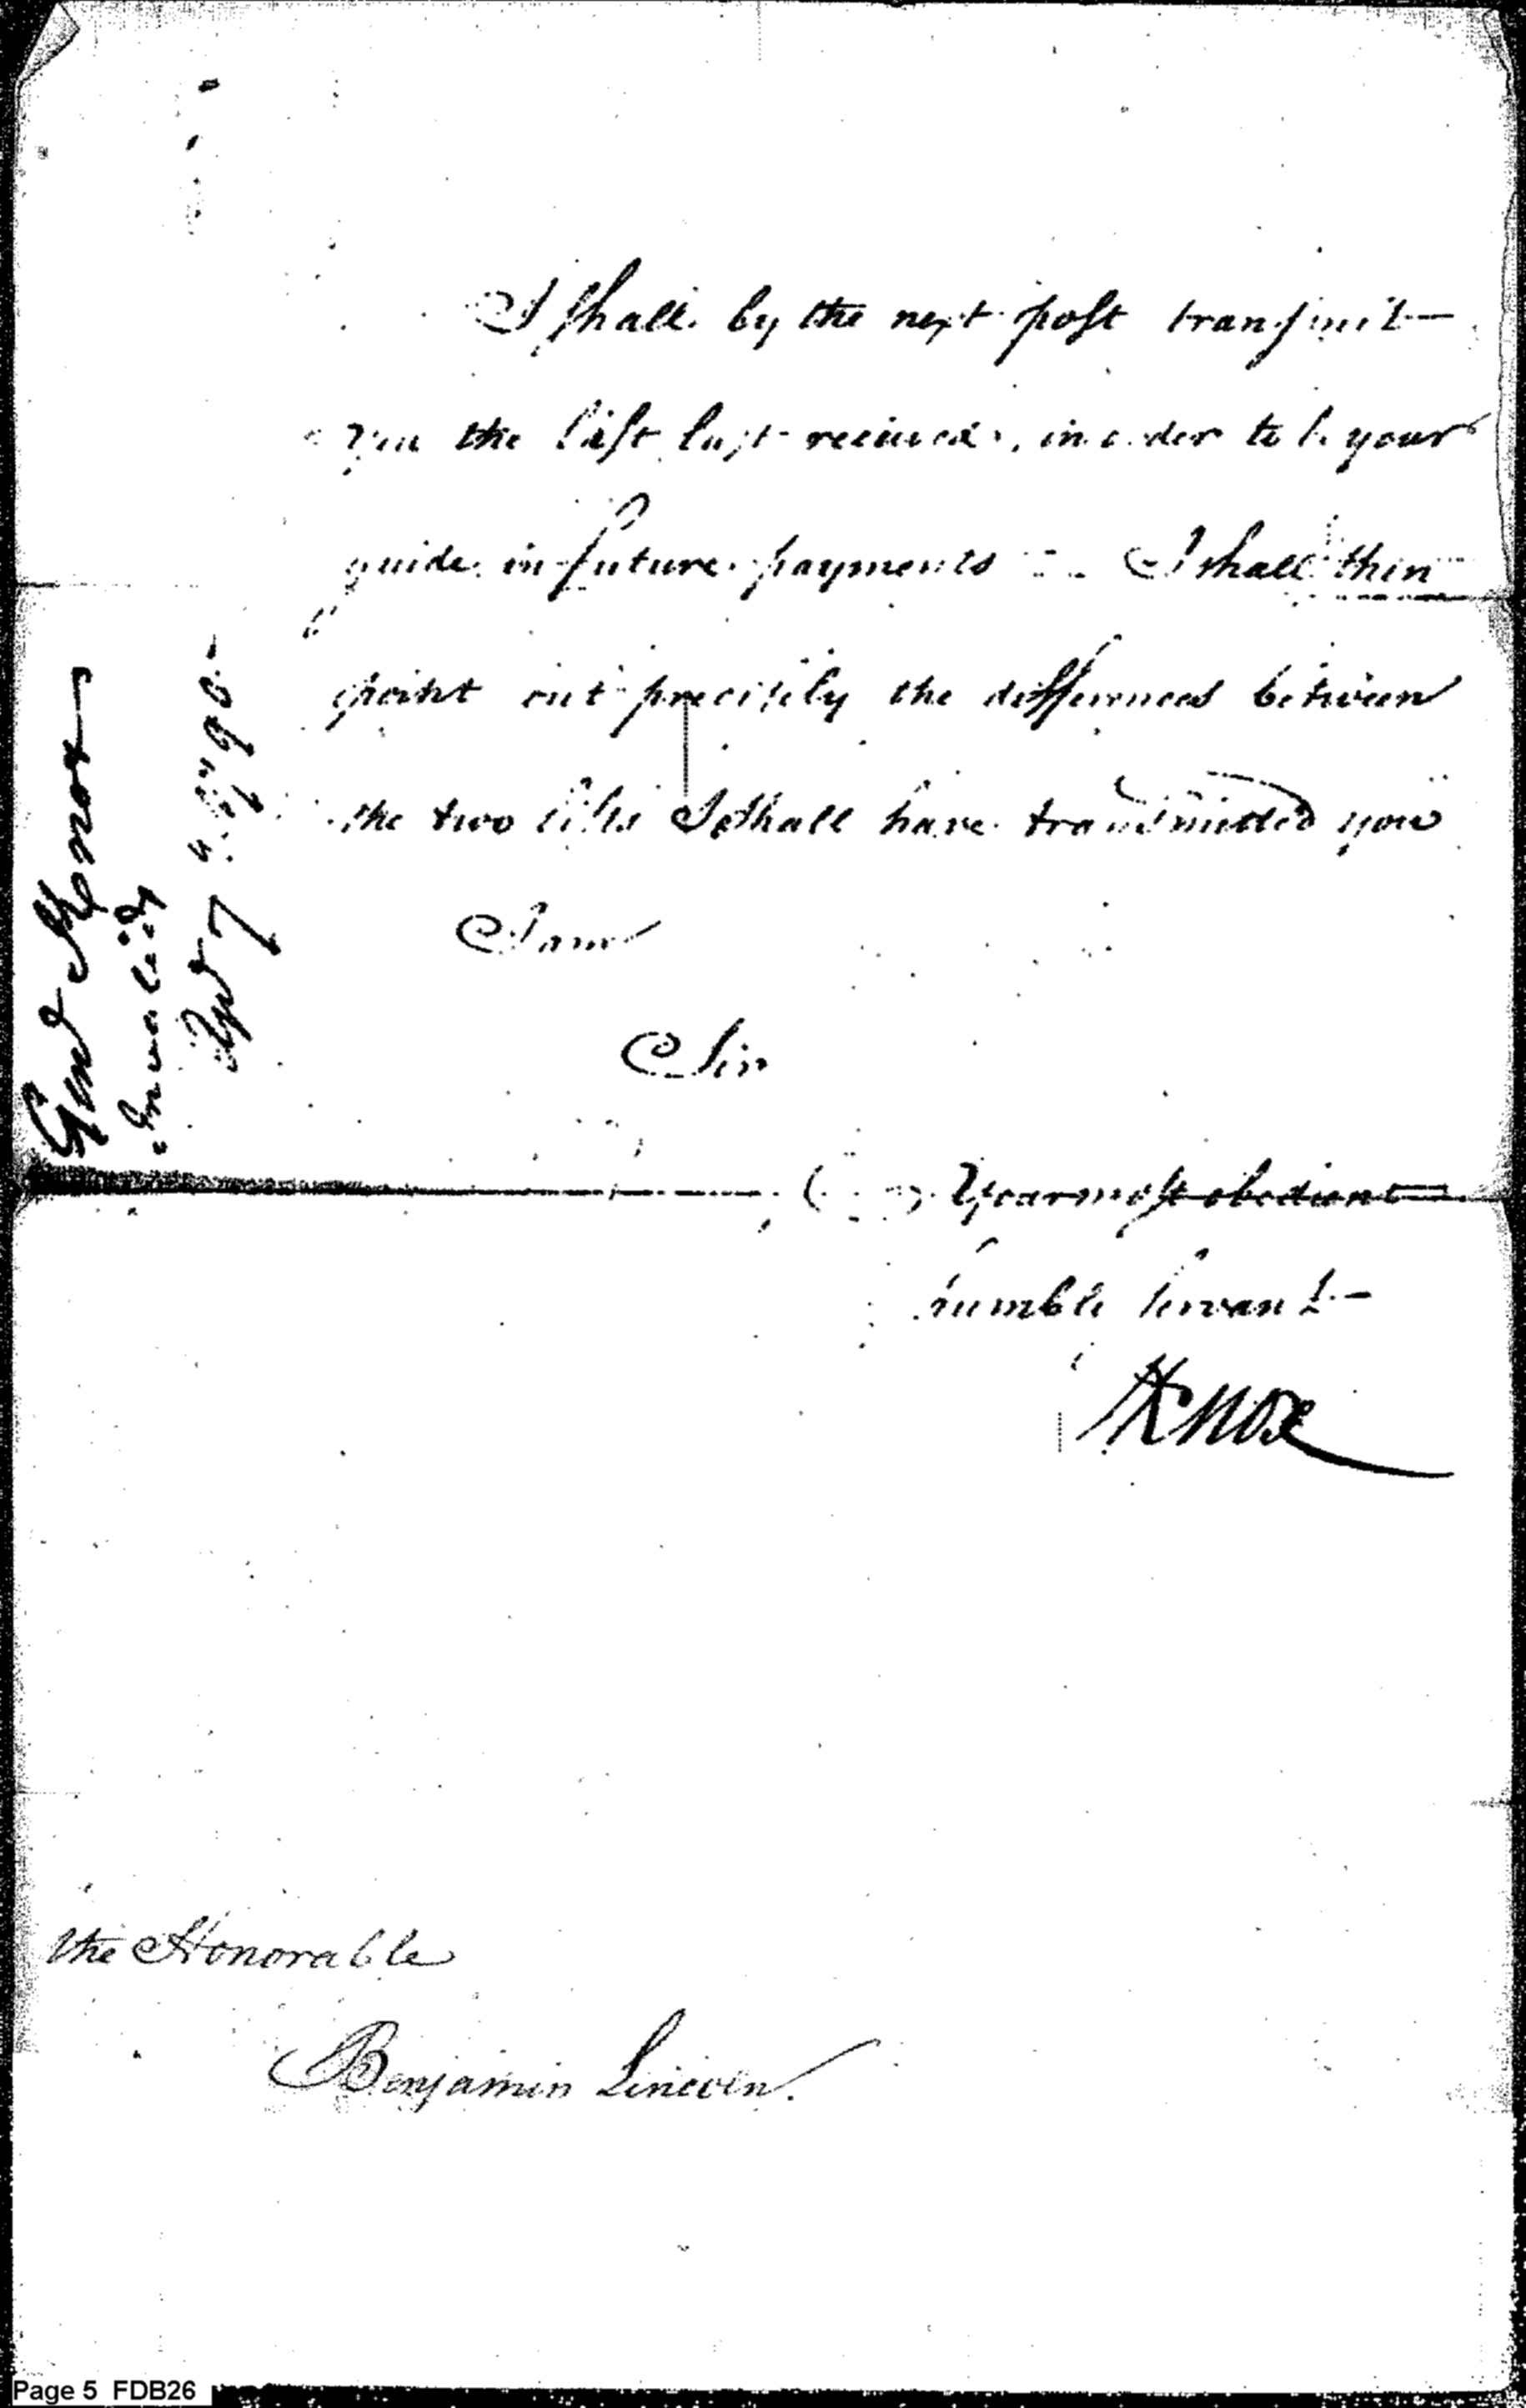 I shall by the next post transmit
you the list last received, in order to be your
guide in future payments — I shall then
point out precisely the differences between
the two lists I shall have transmitted you
I am
Sir
Your most obedient
humble Servant
HKnox
the Honorable
Benjamin Lincoln.
Genl Knox
Invalids
90
Page 5 FDB26